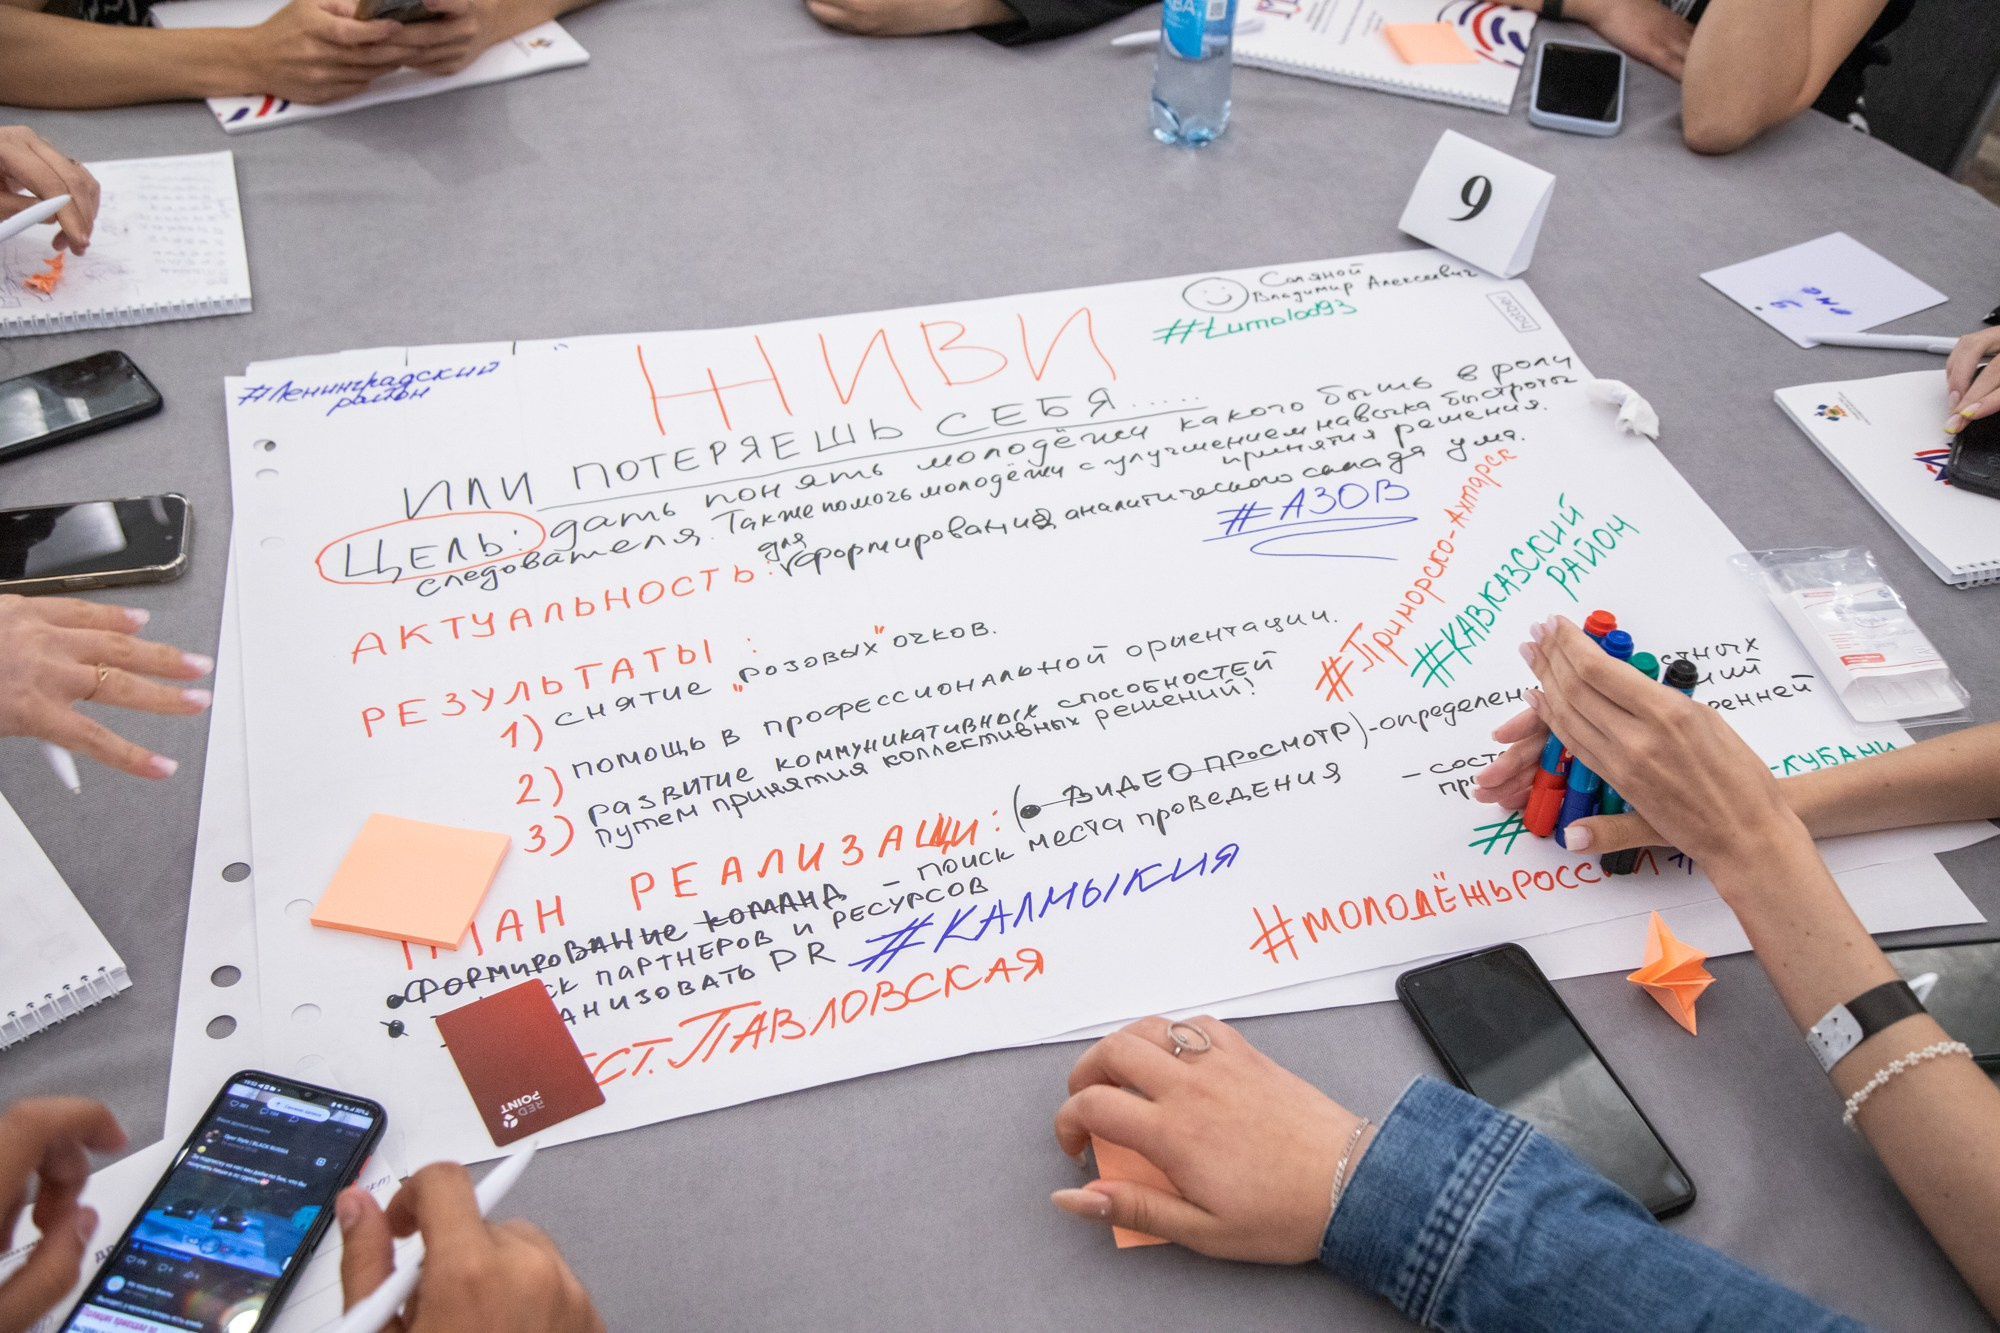 9
Соляной
Владимир Алексеевич
#Lumolod93
hatber
#Ленинградский
район
ЖИВИ
ИЛИ ПОТЕРЯЕШЬ СЕБЯ.....
ЦЕЛЬ: дать понять молодёжи какого быть в роли
следователя. Также помочь молодёжи с улучшением навыка быстроты
принятия решения.
АКТУАЛЬНОСТЬ: для формирования аналитического склада ума.
#АЗОВ
#Приморско-Ахтарск
#КАВКАЗСКИЙ
РАЙОН
РЕЗУЛЬТАТЫ:
1) СНЯТИЕ "розовых" очков.
2) ПОМОЩЬ В ПРОФЕССИОНАЛЬНОЙ ОРИЕНТАЦИИ.
3) РАЗВИТИЕ КОММУНИКАТИВНЫХ СПОСОБНОСТЕЙ
ПУТЕМ ПРИНЯТИЯ КОЛЛЕКТИВНЫХ РЕШЕНИЙ!
ПЛАН РЕАЛИЗАЦИИ: (• ВИДЕО ПРОСМОТР)
• ФОРМИРОВАНИЕ КОМАНД
– ПОИСК МЕСТА ПРОВЕДЕНИЯ
ПАРТНЕРОВ И РЕСУРСОВ
PR
-КУБАНИ
#КАЛМЫКИЯ
#МОЛОДЁЖЬРОССИИ
СТ. ПАВЛОВСКАЯ
RED
POINT